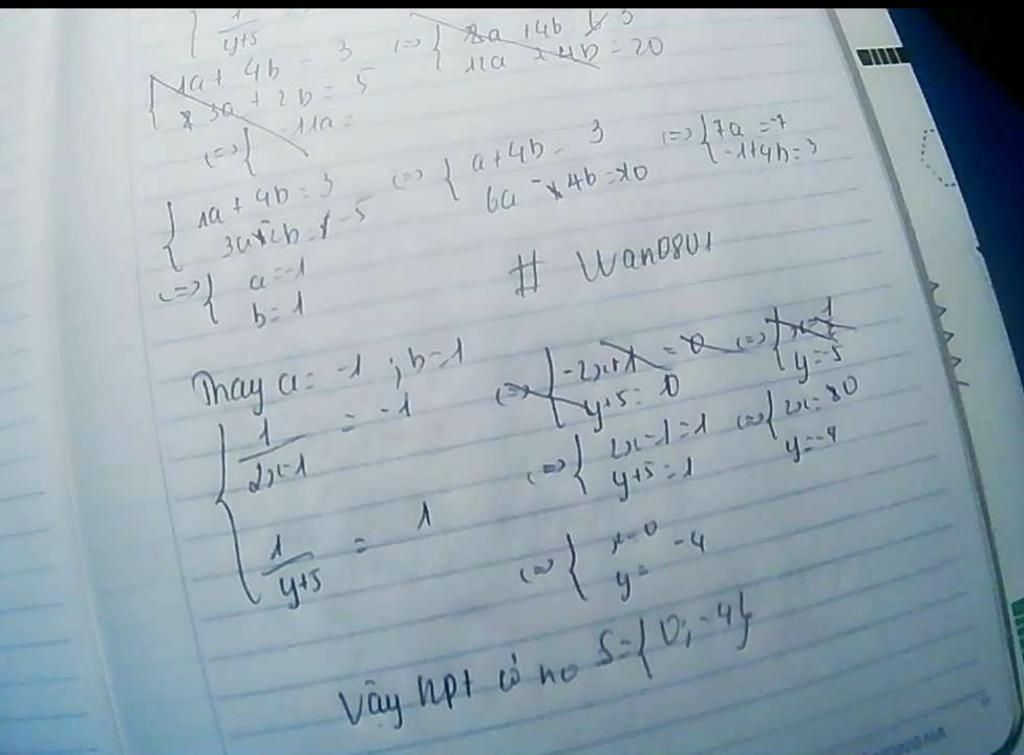 1
y+5
1a + 4b = 3
3a + 2b = 5
(=) { 8a + 4b 3
12a + 4b = 20
(=) { -11a =
{ 1a + 4b = 3
3a 2b -5
(=) { a + 4b = 3
6a - 4b = -10
(=) { 7a = -7
-1 + 4b = 3
(=) { a = -1
b = 1
# Wano801
Thay a = -1 ; b = 1
{ 1/2x-1 = -1
1/y+5 = 1
(=) { -2x+1 = 0
y+5 = 0
(=) {
y = -5
(=) { 2x-1 = 1
y+5 = 1
(=) { 2x = 0
y = -4
(=) { x = 0
y = -4
Vậy hpt có no S = {0; -4}